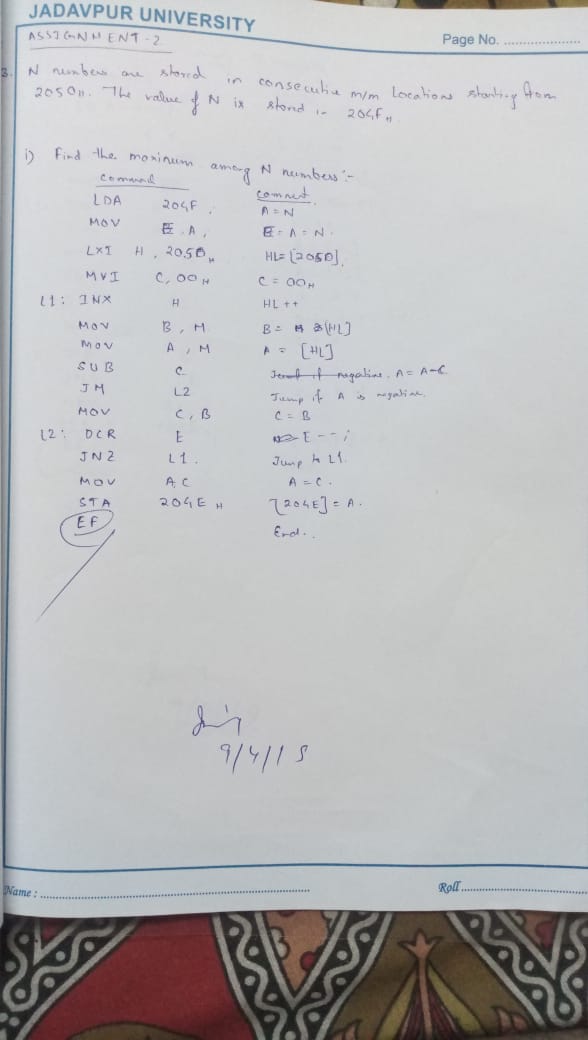 JADAVPUR UNIVERSITY
ASSIGNMENT-2
Page No.
3. N numbers are stored in consecutive m/m locations starting from
2050H. The value of N is stored in 204FH
i) Find the maximum among N numbers:-
Command comment
LDA 204F A=N
MOV E,A, E=A=N.
LXI H, 2050H HL=[2050].
MVI C, 00H C=00H
L1: INX H HL++
MOV B, M B= [HL]
MOV A, M A = [HL]
SUB C A=A-C
JM L2 Jump if A is negative.
MOV C, B C=B
L2: DCR E E--;
JNZ L1. Jump to L1.
MOV A C A=C.
STA 204E H [204E]=A.
EF End..
9/4/15
Name :
Roll